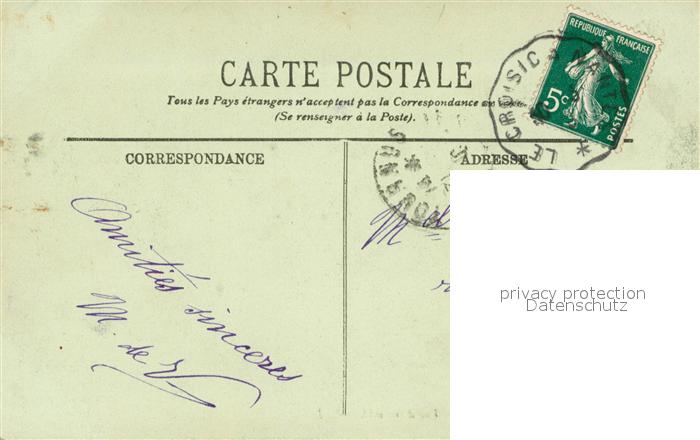 REPUBLIQUE FRANÇAISE
5c
POSTES
LE CROISIC
CARTE POSTALE
Tous les Pays étrangers n'acceptent pas la Correspondance au
(Se renseigner à la Poste).
CORRESPONDANCE
ADRESSE
Amitiés sincères
M. de V
privacy protection
Datenschutz